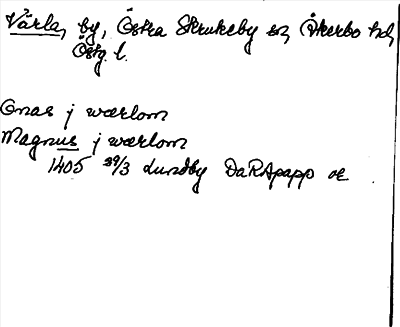 Värla, by, Östra Skrukeby sn, Åkerbo hd,
Östg. l.
Onas j wærlom
Magnus j wærlom
1405 29/3 Lundby DaRApapp or